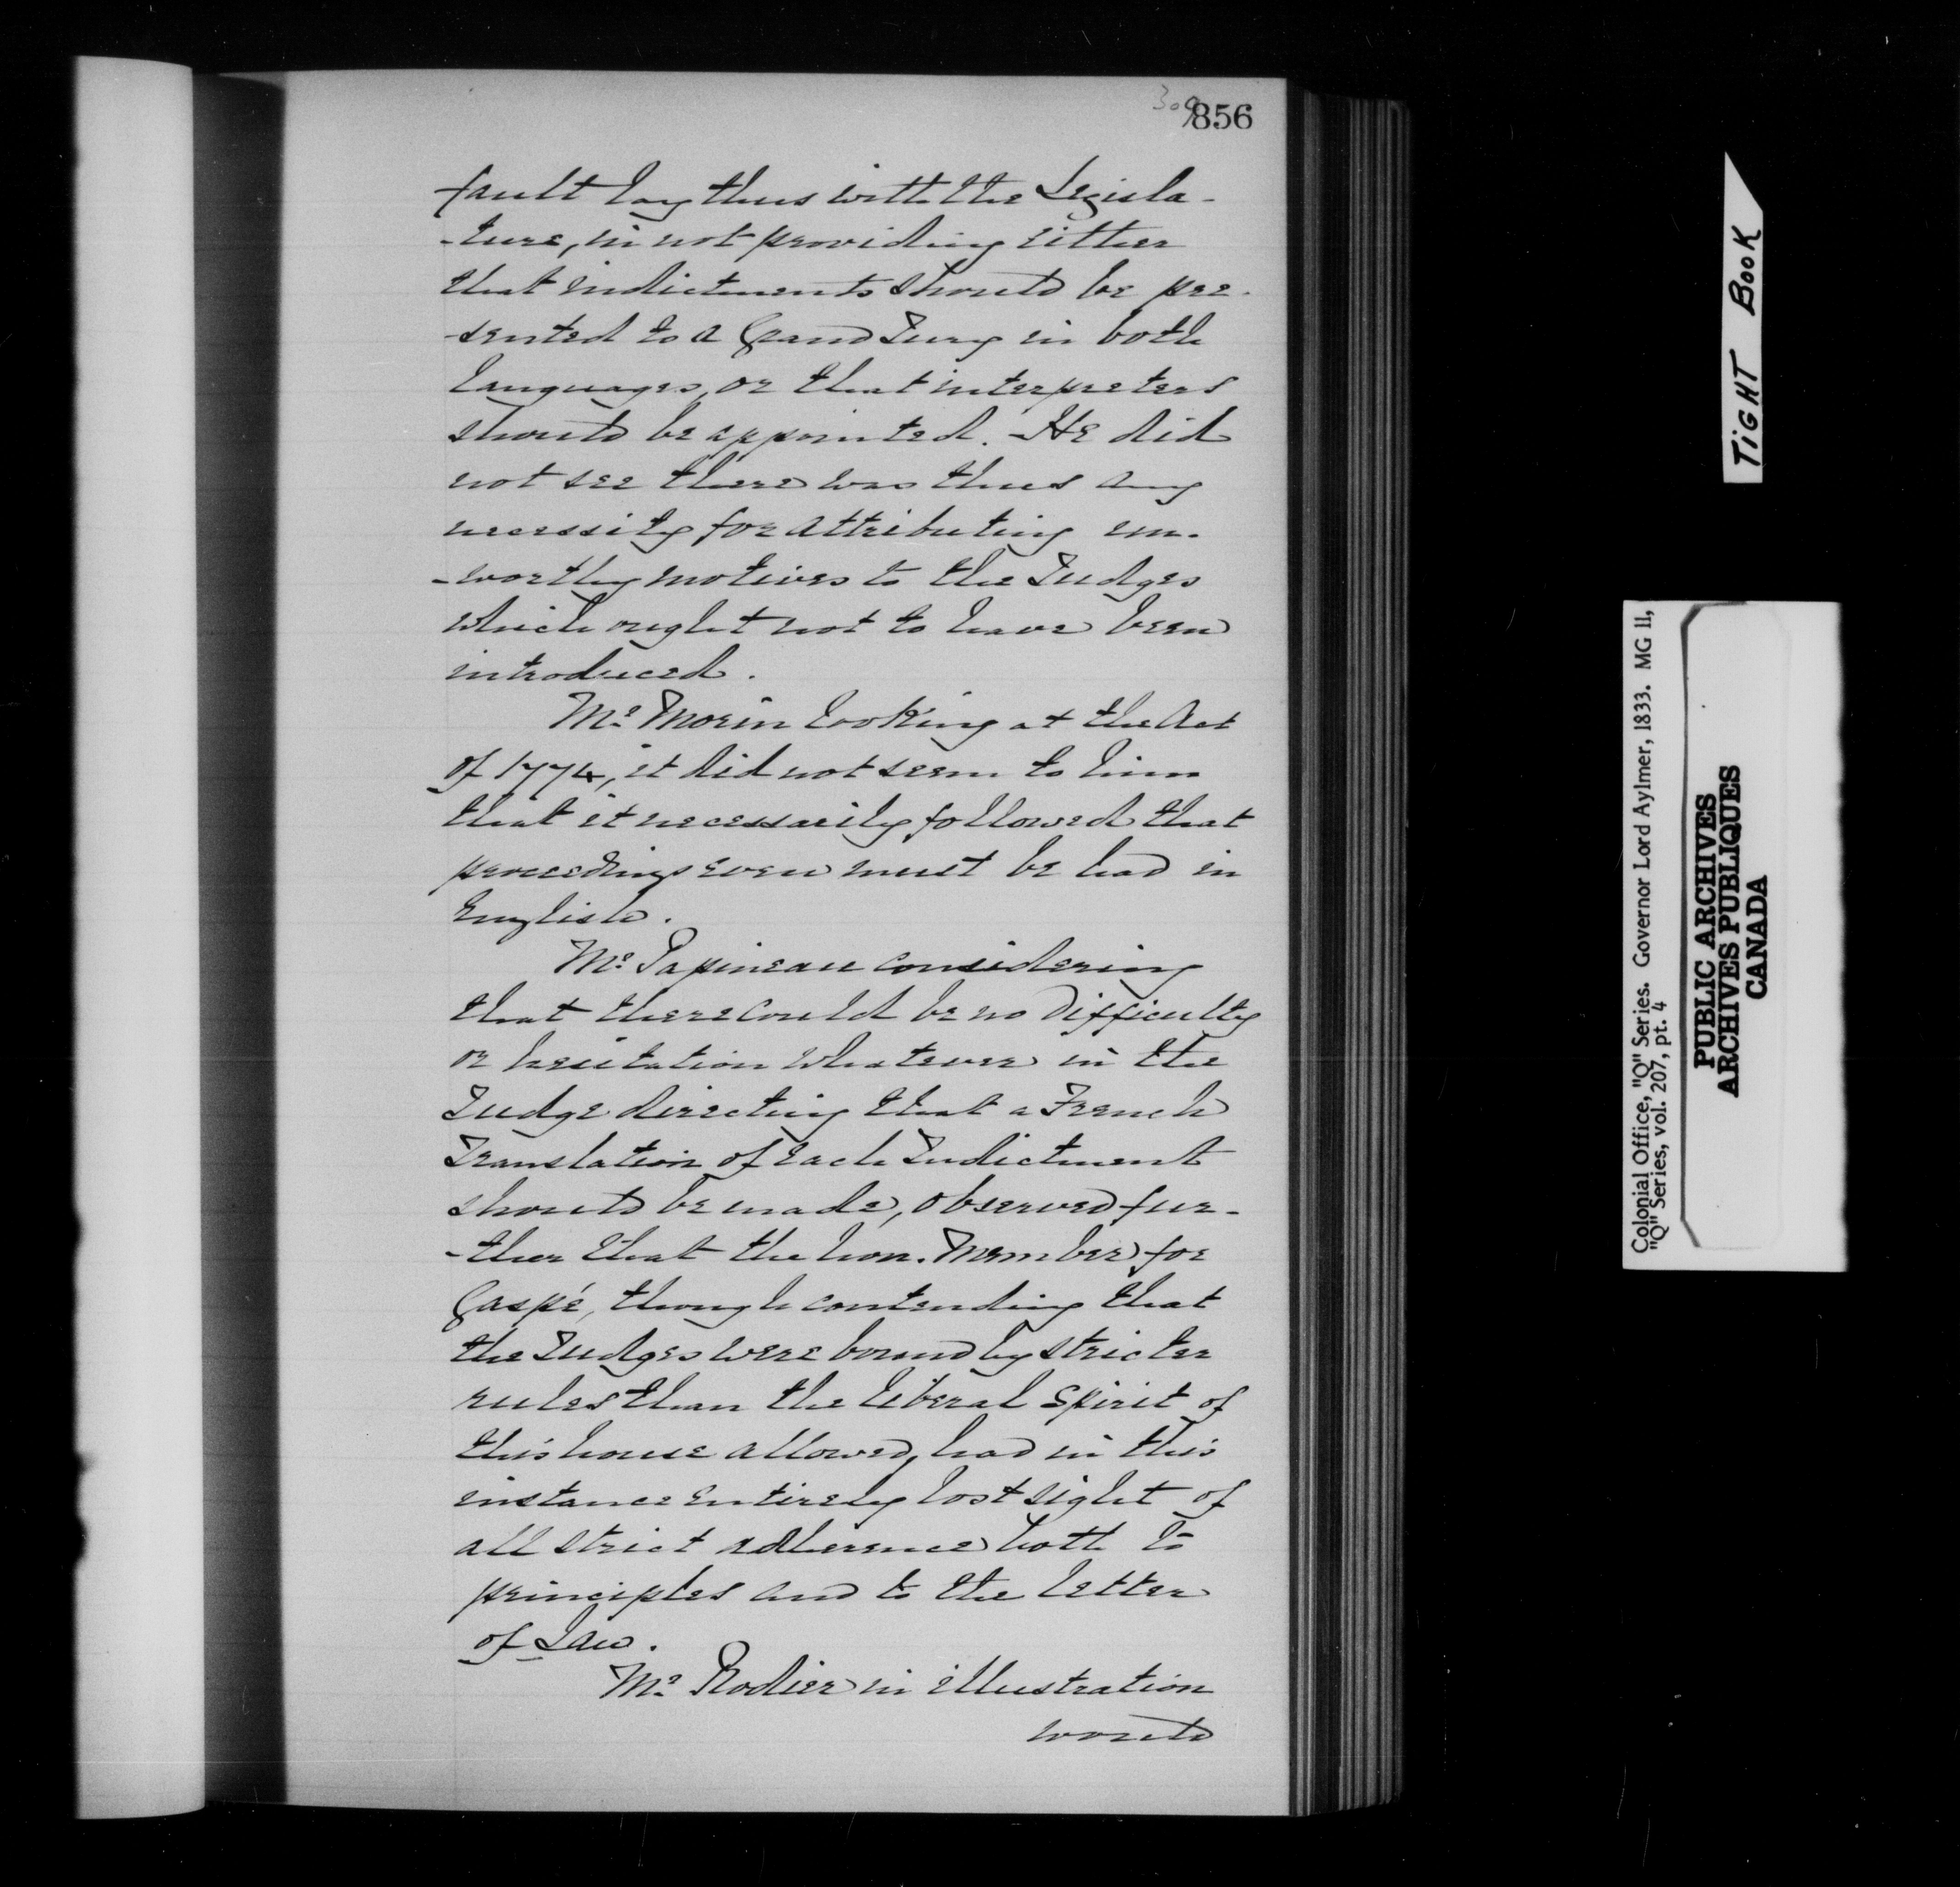 309
856
fault lay thus with the Legisla-
-ture, in not providing either
that indictments should be pre-
-sented to a Grand Jury in both
languages, or that interpreters
should be appointed. - He did
not see there was thus any
necessity for attributing un-
-worthy motives to the Judges
which ought not to have been
introduced.
Mr Morin looking at the Act
of 1774, it did not seem to him
that it necessarily followed that
proceedings even must be had in
English.
Mr Papineau considering
that there could be no difficulty
or hesitation whatever in the
Judge directing that a French
Translation of each Indictment
should be made, observed fur-
-ther that the hon. Member for
Gaspé, though contending that
the Judges were bound by stricter
rules than the liberal spirit of
this house allowed, had in this
instance entirely lost sight of
all strict adherence both to
principles and to the letter
of Law.
Mr Rodier in illustration
would
TIGHT BOOK
Colonial Office, "Q" Series. Governor Lord Aylmer, 1833. MG 11,
"Q" Series, vol. 207, pt. 4
PUBLIC ARCHIVES
ARCHIVES PUBLIQUES
CANADA